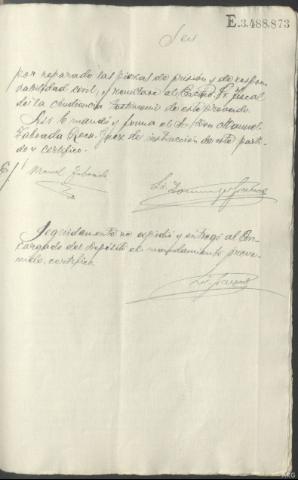 E.3.488.873
Seis
por separado las piezas de prisión y de respon-
sabilidad civil, y remítase al Excmo. Sr. Fiscal
de la Audiencia testimonio de este proveido.
Lo mandó y firma el Sr. Don Manuel
Juez de instrucción de este parti-
do certifico.
Manuel
Lic. Domingo
Seguidamente se expidió y entregó al En-
cargado del depósito el mandamiento preve-
nido. certifico